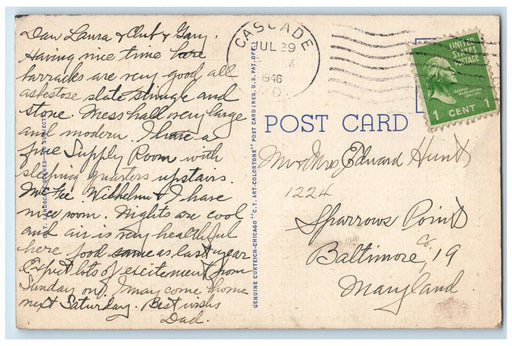 Dear Laura & Art & Gary.
Having nice time here
barracks are very good all
asbestose slate shingle and
stone. Mess hall very large
and modern. I have a
fine Supply Room with
sleeping quarters upstairs.
McFee. Wilhelm & I have
nice room. Nights are cool
and air is very healthful
here. food same as last year
Expect lots of excitement from
Sunday on. I may come home
next Saturday. Best wishes
Dad.
CASCADE
JUL 29
M
1946
UNITED
STATES
POSTAGE
1 CENT 1
POST CARD
GENUINE CURTEICH-CHICAGO "C.T. ART-COLORTONE" POST CARD (REG. U.S. PAT. OFF.)
Mr & Mrs Edward Hunt
1224
Sparrows Point
Baltimore, 19
Co.
Maryland.